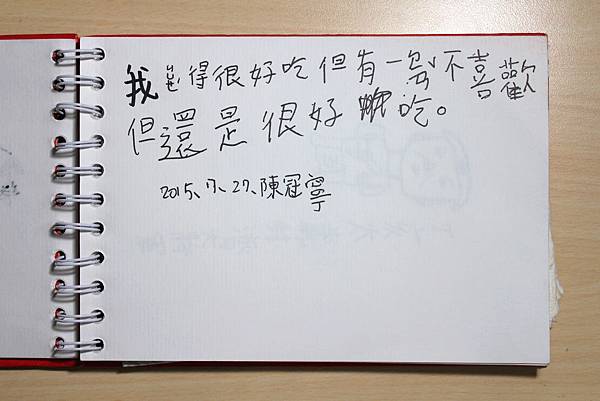 我覺得很好吃但有一點不喜歡
但還是很好吃。
2015.7.27.陳冠寧